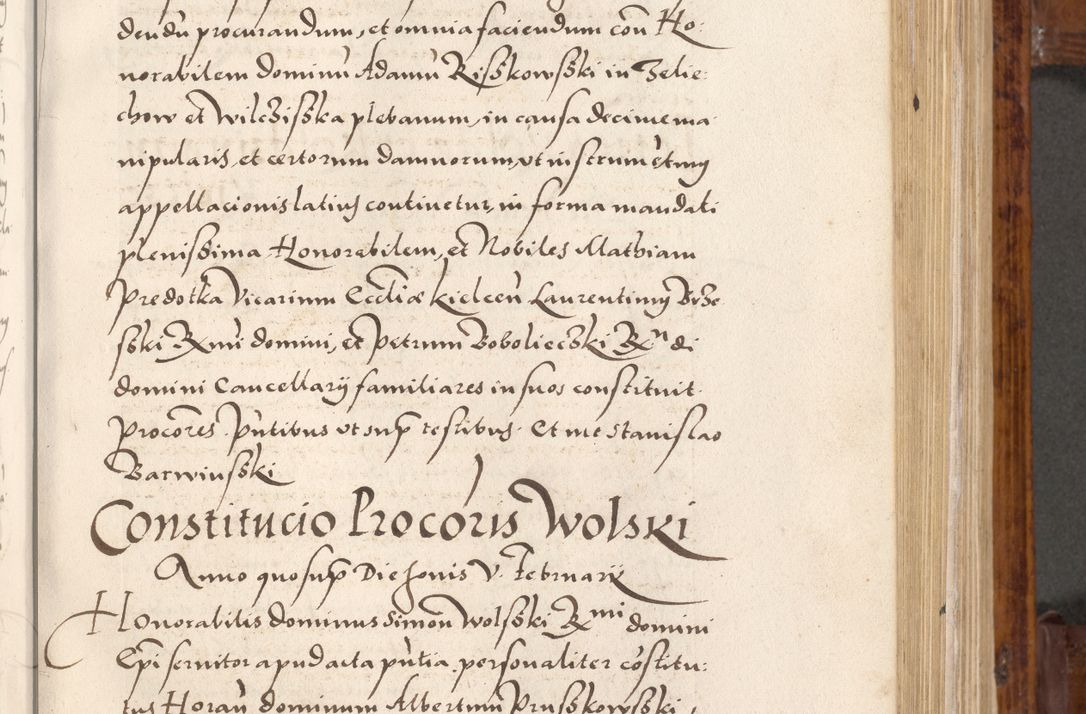 dendũ procurandum, et omnia faciendum coñ Ho-
norabilem dominũ Adamũ Rißkowßki in Zelie-
chow et Wilczißka plebanum, in causa decime ma-
nipularis, et certorum damnorum, vt in strumẽtinȝ
appellacionis latiuȝ continetur, in forma mandati
plenissima Honorabilem, et Nobiles Mathiam
Predotka Vicarium Eccliæ kielceñ Laurentinmȝ Brze-
ßki Rmi domini, et Petrum Boboliecßki Rn di
domini Cancellarij familiares in suos constituit
Procõres Pñtibus vt supra testibus. Et me Stanislao
Barwinßki
Constitucio Procõris Wolski
Anno quo supra Die Jouis V. Februarij
Honorabilis dominus Simon Wolßki Rmi domini
Epi seruitor apud acta pñtia personaliter cõstitu-
tus Horañ dominum Albertum Prußkowßki,